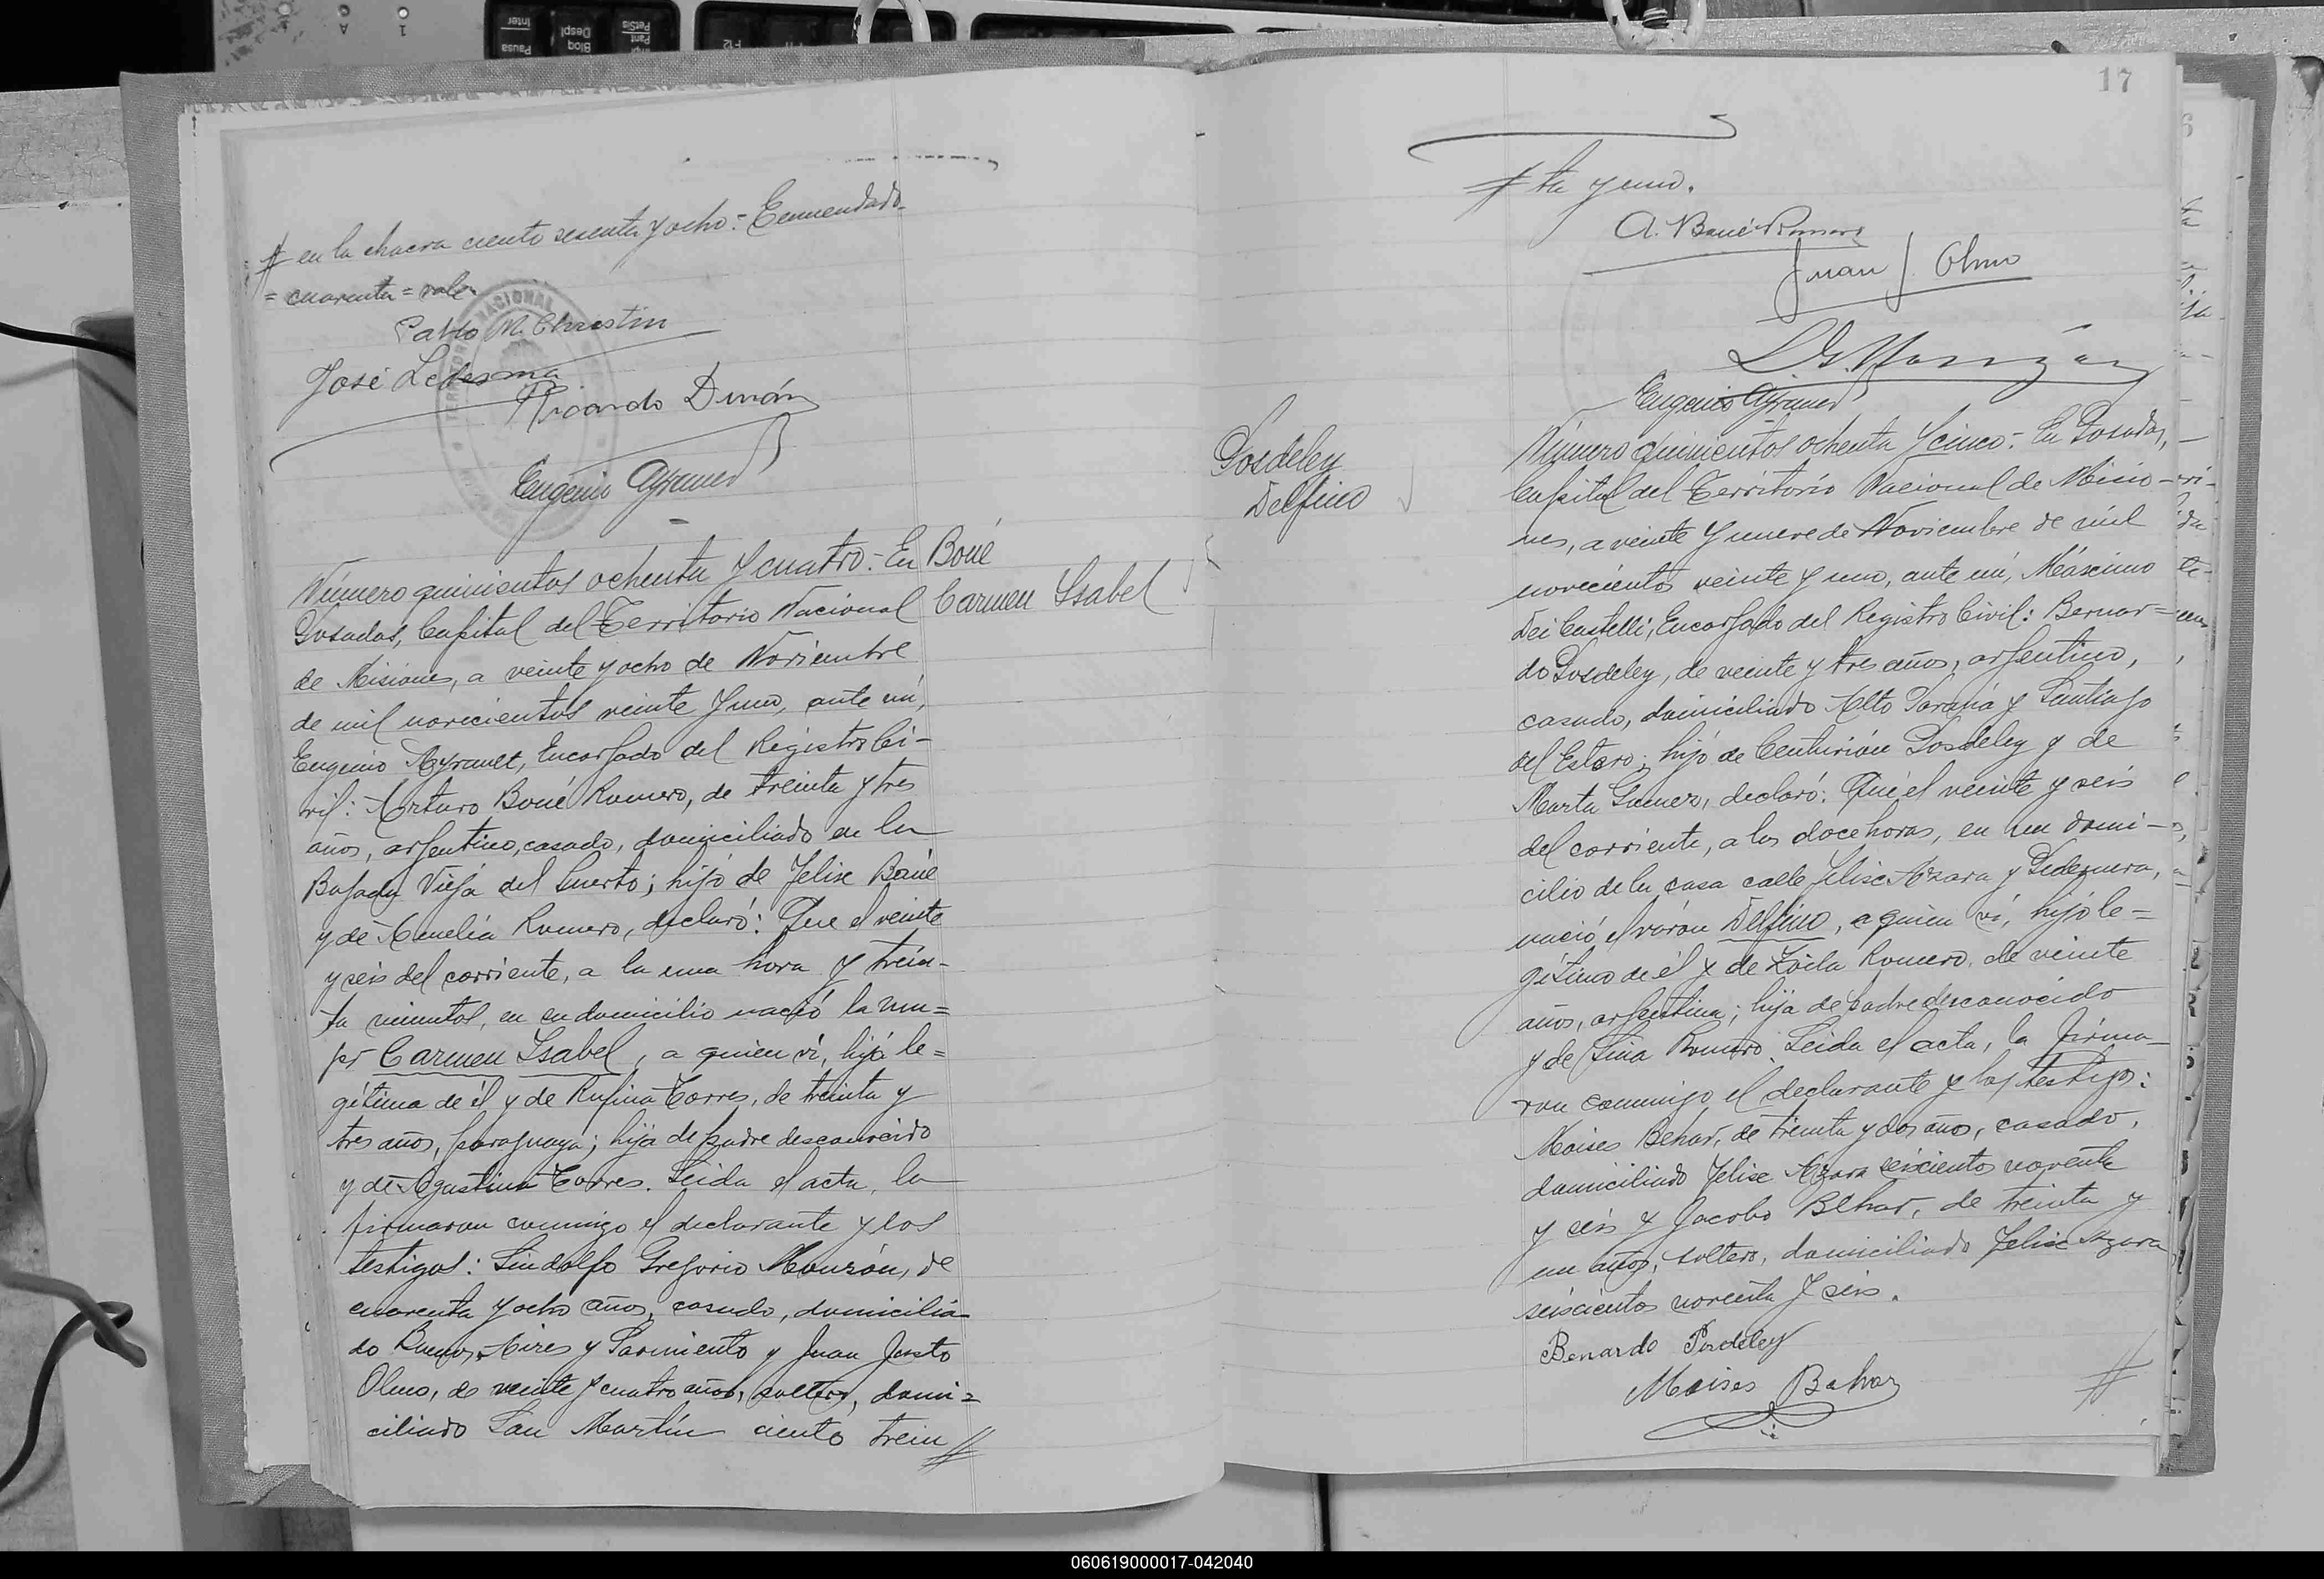 # en la chacra ciento sesenta y ocho = Enmendado
= cuarenta = vale.
Pablo M. Christin
José Ledesma
Ricardo Durán
Eugenio Ayrault
Número quinientos ochenta y cuatro.- En
Posadas, Capital del Territorio Nacional
de Misiones, a veinte y ocho de Noviembre
de mil novecientos veinte y uno, ante mí,
Eugenio Ayrault, Encargado del Registro Ci-
vil: Arturo Boué Romero, de treinta y tres
años, argentino, casado, domiciliado en la
Bajada Vieja del Puerto; hijo de Felix Boué
y de Amelia Romero, declaró: Que el veinte
y seis del corriente, a la una hora y trein-
ta minutos, en su domicilio nació la mu=
jer Carmen Ysabel, a quien ví, hija le=
gítima de él y de Rufina Torres, de treinta y
tres años, paraguaya; hija de padre desconocido
y de Agustina Torres. Leida el acta, la
firmaron conmigo el declarante y los
testigos: Lindolfo Gregorio Monzón, de
cuarenta y ocho años, casado, domicilia-
do Buenos Aires y Sarmiento y Juan Justo
Olmo, de veinte y cuatro años, soltero, domi=
ciliado San Martín ciento trein #
Boué
Carmen Ysabel
17
# ta y uno.
A. Boué Romero
Juan J. Olmo
L. G. Monzón
Eugenio Ayrault
Posdeley
Delfino
Número quinientos ochenta y cinco.- En Posadas,
Capital del Territorio Nacional de Misio-
nes, a veinte y nueve de Noviembre de mil
novecientos veinte y uno, ante mí, Máximo
Dei Castelli, Encargado del Registro Civil: Bernar=
do Posdeley, de veinte y tres años, argentino,
casado, domiciliado Alto Paraná y Santiago
del Estero; hijo de Centurión Posdeley y de
Marta Gomez, declaró: Que el veinte y seis
del corriente, a las doce horas, en su domi-
cilio de la casa calle Felix Azara y Pedernera,
nació el varón Delfino, a quien ví, hijo le=
gítimo de él y de Zoila Romero, de veinte
años, argentina; hija de padre desconocido
y de Romero. Leida el acta, la firma-
ron conmigo el declarante y los testigos:
Moises Behar, de treinta y dos años, casado,
domiciliado Felix Azara seiscientos noventa
y seis y Jacobo Behar, de treinta y
un años, soltero, domiciliado Felix Azara
seiscientos noventa y seis.
Benardo Posdeley
Moises Bahar
#
060619000017-042040